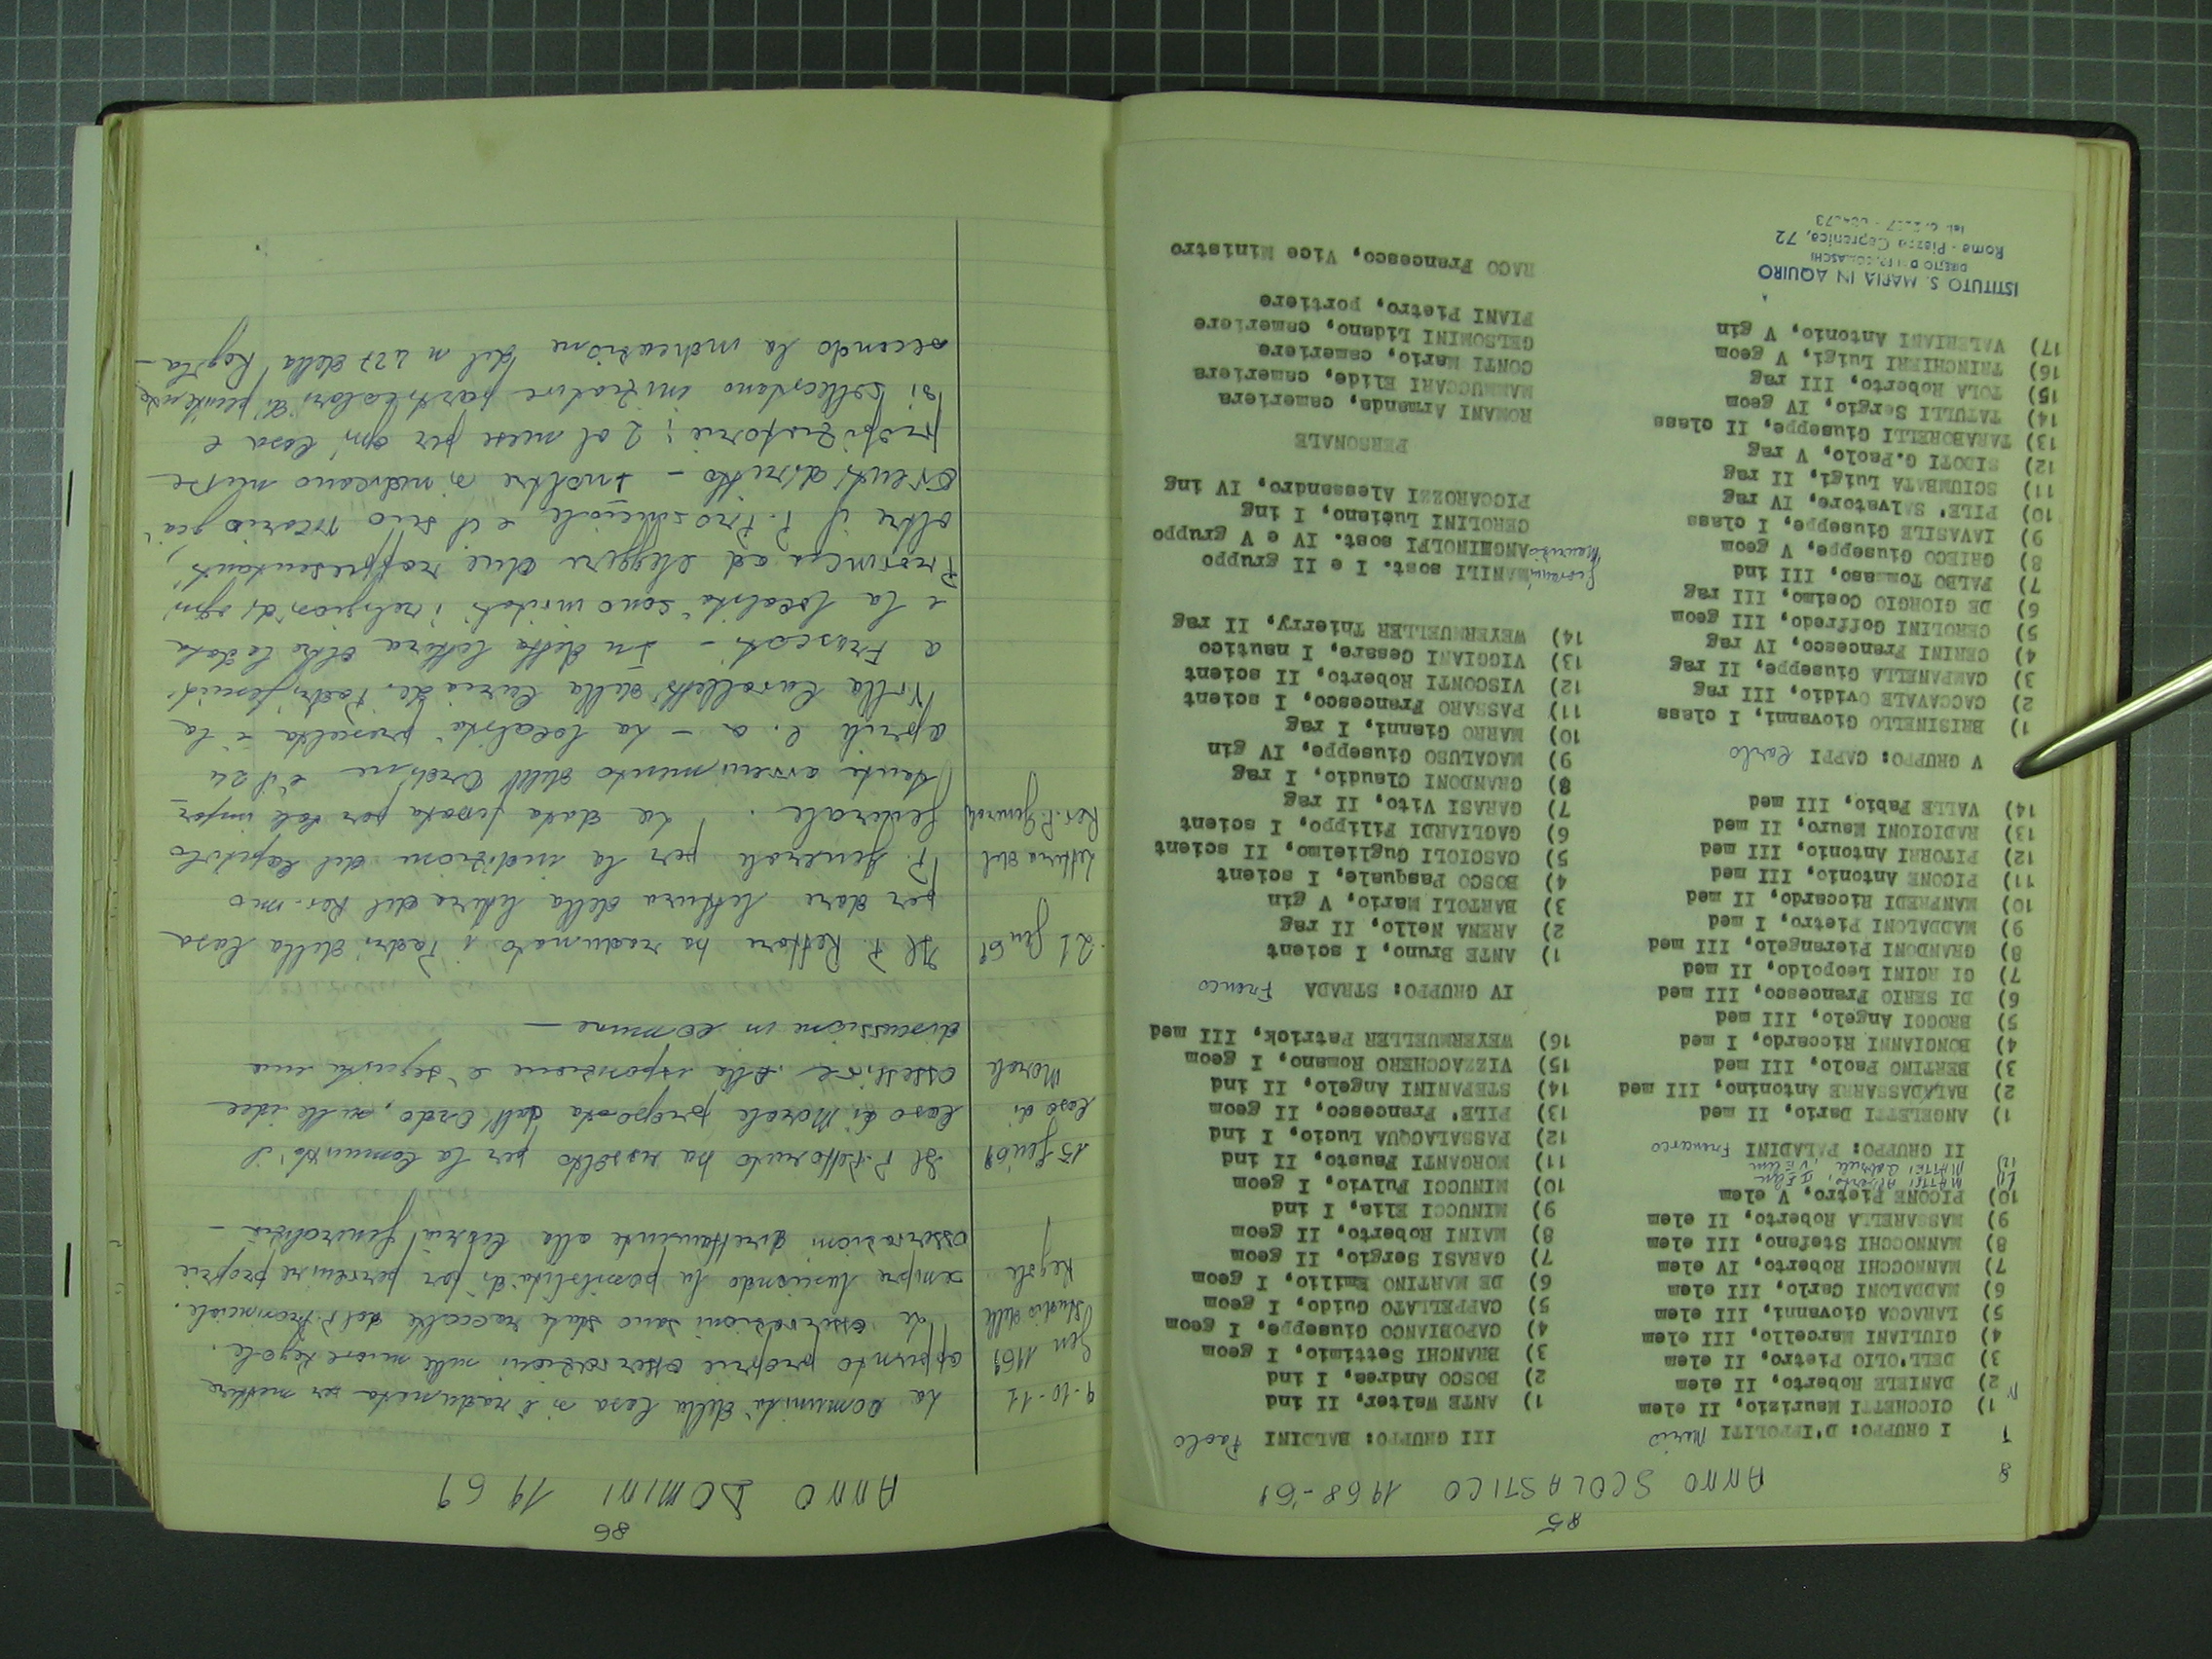 85
ANNO SCOLASTICO 1968-69
I GRUPPO: D'IPPOLITI Mario
1) CICCHETTI Maurizio, II elem
2) DANIELE Roberto, II elem
3) DELL'OLIO Pietro, II elem
4) GIULIANI Marcello, III elem
5) LARACCA Giovanni, III elem
6) MADDALONI Carlo, III elem
7) MANNOCCHI Roberto, IV elem
8) MANNOCCHI Stefano, III elem
9) MASSARELLA Roberto, II elem
10) PICONE Pietro, V elem
11) MATTEI Alberto, II Elem
12) MATTEI Gabriele, V Elem
II GRUPPO: PALADINI Francesco
1) ANGELETTI Dario, II med
2) BALADASSARRE Antonino, III med
3) BERTINO Paolo, III med
4) BONGIANNI Riccardo, I med
5) BROGGI Angelo, III med
6) DI SERIO Francesco, III med
7) GI RGINI Leopoldo, II med
8) GRANDONI Pierangelo, III med
9) MADDALONI Pietro, I med
10) MANFREDI Riccardo, II med
11) PICONE Antonio, III med
12) PITORRI Antonio, III med
13) RADICIONI Mauro, II med
14) VALLE Fabio, III med
V GRUPPO: CAPPI Carlo
1) BRISINELLO Giovanni, I class
2) CACCAVALE Ovidio, III rag
3) CAMPANELLA Giuseppe, II rag
4) CERINI Francesco, IV rag
5) CEROLINI Goffredo, III geom
6) DE GIORGIO Cosimo, III rag
7) FALBO Tommaso, III ind
8) GRIECO Giuseppe, V geom
9) IAVASILE Giuseppe, I class
10) PILE' Salvatore, IV rag
11) SCIUMBATA Luigi, II rag
12) SIDOTI G.Paolo, V rag
13) TARABORELLI Giuseppe, II class
14) TATULLI Sergio, IV geom
15) TOLA Roberto, III rag
16) TRINCHIERI Luigi, V geom
17) VALERIANI Antonio, V gin
ISTITUTO S. MARIA IN AQUIRO
Roma - Piazza Capranica, 72
III GRUPPO: BALDINI Paolo
1) ANTE Walter, II ind
2) BOSCO Andrea, I ind
3) BRANCHI Settimio, I geom
4) CAPOBIANCO Giuseppe, I geom
5) CAPPELLATO Guido, I geom
6) DE MARTINO Emilio, I geom
7) GARASI Sergio, II geom
8) MAINI Roberto, II geom
9) MINUCCI Elia, I ind
10) MINUCCI Fulvio, I geom
11) MORGANTI Fausto, II ind
12) PASSALACQUA Lucio, I ind
13) PILE' Francesco, II geom
14) STEFANINI Angelo, II ind
15) VIZZACCHERO Romano, I geom
16) WEYERMUELLER Patrick, III med
IV GRUPPO: STRADA Franco
1) ANTE Bruno, I scient
2) ARENA Nello, II rag
3) BARTOLI Mario, V gin
4) BOSCO Pasquale, I scient
5) CASCIOLI Guglielmo, II scient
6) GAGLIARDI Filippo, I scient
7) GARASI Vito, II rag
8) GRANDONI Claudio, I rag
9) MAGALUSO Giuseppe, IV gin
10) MARRO Gianni, I rag
11) PASSARO Francesco, I scient
12) VISCONTI Roberto, II scient
13) VIGGIANI Cesare, I nautico
14) WEYERMUELLER Thierry, II rag
Giovanni MANILI sost. I e II gruppo
Maurizio sost. IV e V gruppo
CEROLINI Luciano, I ing
PICCAROZZI Alessandro, IV ing
PERSONALE
ROMANI Armanda, cameriera
MANNUCCARI Elide, cameriera
CONTI Mario, cameriere
GELSOMINI Lidano, cameriere
PIANI Pietro, portiere
RAGO Francesco, Vice Ministro
86
ANNO DOMINI 1969
9-10-11 La comunità della Casa si è radunata per mettere
Gen 1969 appunto proprie osservazioni sulle nuove Regole.
Studio delle Le osservazioni sono state raccolte dal P. Provinciale.
Regole sempre lasciando la possibilità di far pervenire proprie
osservazioni direttamente alla Curia Generalizia —
15 Gen 69 Il P. ha risolto per la Comunità il
Caso di caso di Morale proposto dall'Ordo, sulle idee
Morale ossessive. Alla esposizione è seguita una
discussione in comune —
21 Gen 69 Il P. Rettore ha radunato i Padri della Casa
per dare lettura della lettera del Rev.mo
Lettera del P. Generale per la indizione del Capitolo
Rev. P. Generale Generale. La data fissata per tale impor-
tante avvenimento dell'Ordine è il 24
aprile c. a — La località prescelta è la
Villa Cavalletti della Curia dei Padri Gesuiti
a Frascati — In detta lettera oltre la data
e la località sono invitati i religiosi di ogni
Provincia ad eleggere due rappresentanti,
oltre il P. Provinciale e il suo Vicario già
aventi diritto — Inoltre si indicano messe
propiziatorie: 2 al mese per ogni Casa e
si sollecitano iniziative particolari di penitenza
secondo la indicazione del n 427 della Regola —